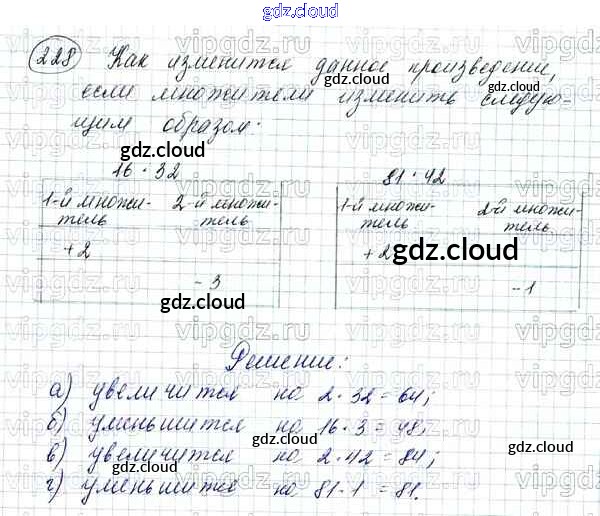 gdz.cloud
228 Как изменится данное произведение,
если множители изменить следую-
щим образом:
gdz.cloud
16 · 32 81 · 42
1-й множи- 2-й множи- 1-й множи- 2-й множи-
тель тель тель тель
+2 +2 gdz.cloud
- 3 - 1
gdz.cloud gdz.cloud
Решение:
gdz.cloud
а) увеличится на 2 · 32 = 64;
б) уменьшится на 16 · 3 = 48;
в) увеличится на 2 · 42 = 84;
г) уменьшится на 81 · 1 = 81.
gdz.cloud gdz.cloud
gdz.cloud
vipgdz.ru